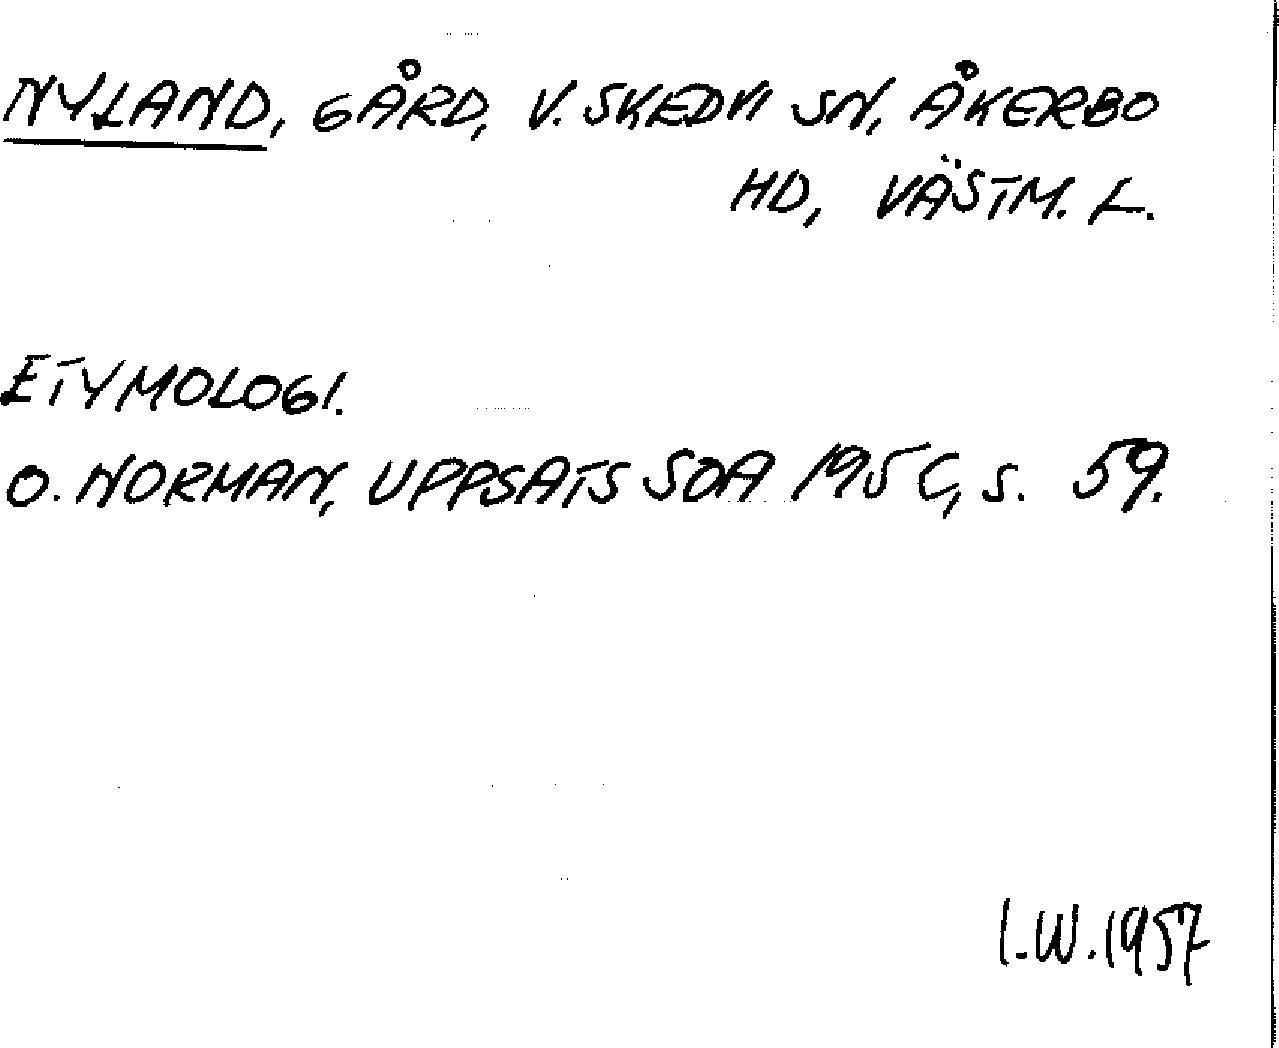 NYLAND, GÅRD, V. SKEDVI SN, ÅKERBO
HD, VÄSTM. L.
ETYMOLOGI.
O. NORMAN, UPPSATS SOA 195 C, S. 59.
I.W. 1957